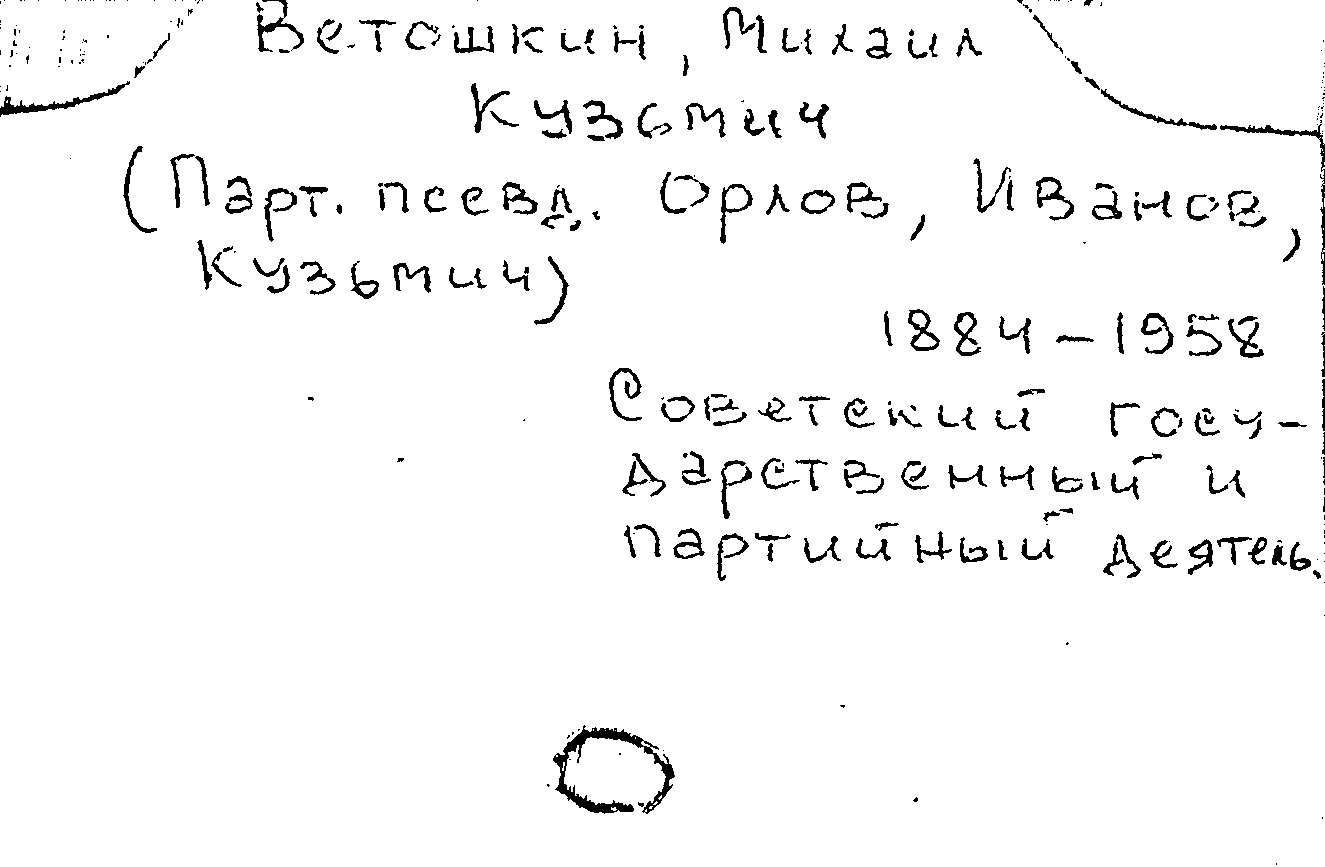 Ветошкин, Михаил
Кузьмич
(Парт. псевд. Орлов, Иванов,
Кузьмич)
1884-1958
Советский госу-
дарственный и
партийный деятель.